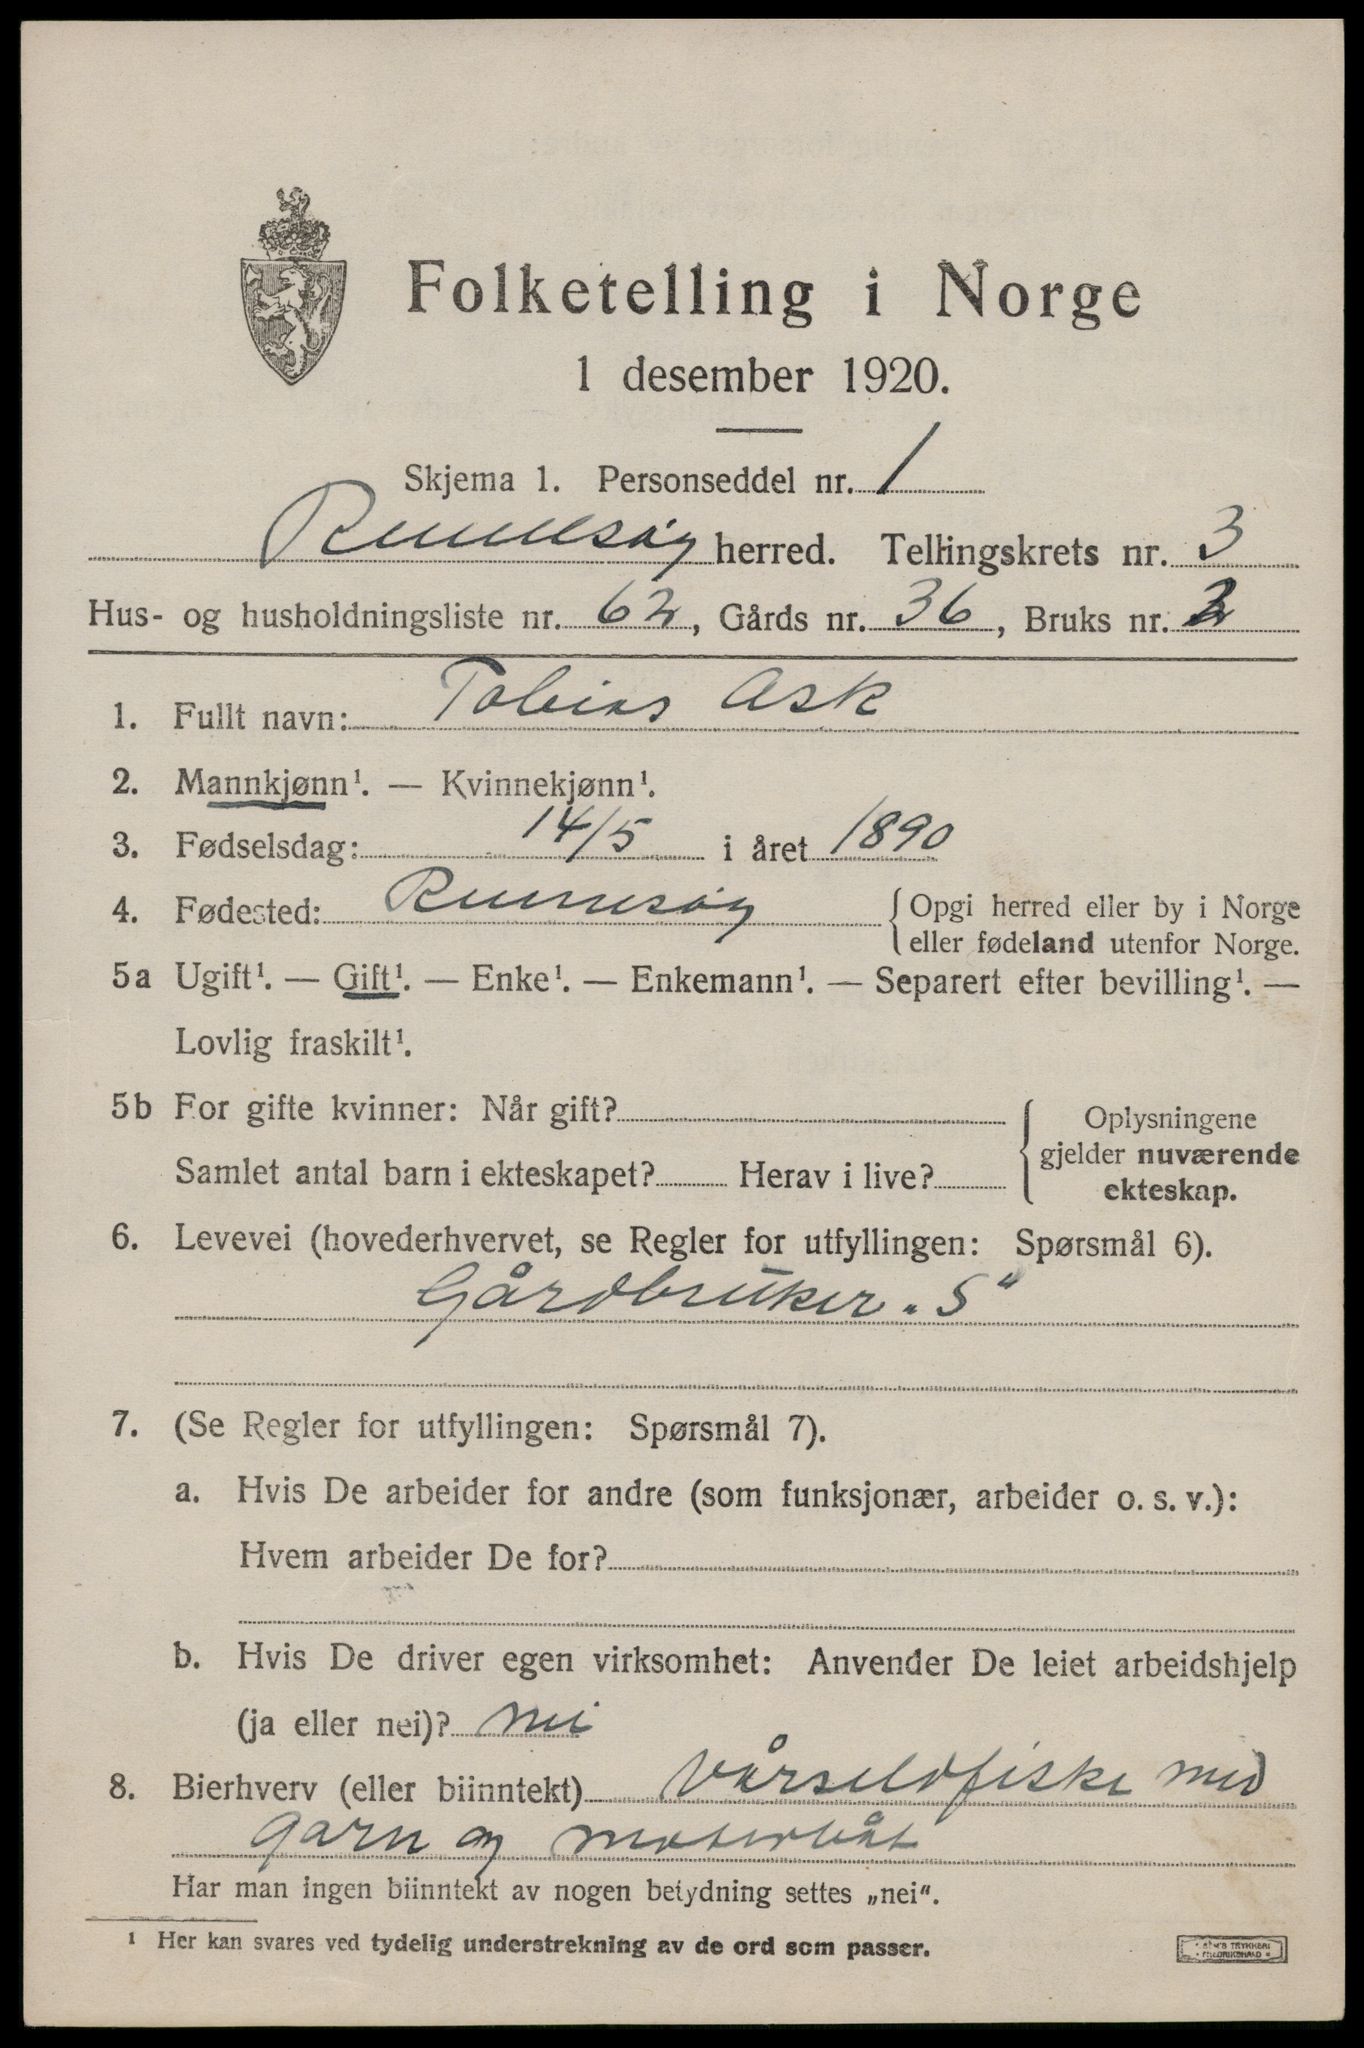 Folketelling i Norge
1 desember 1920.
Skjema 1. Personseddel nr. 1
Rennesøy herred. Tellingskrets nr. 3
Hus- og husholdningsliste nr. 62, Gårds nr. 36, Bruks nr. 2
1. Fullt navn: Tobias Ask
2. Mannkjønn¹. — Kvinnekjønn¹.
3. Fødselsdag: 14/5 i året 1890
4. Fødested: Rennesøy { Opgi herred eller by i Norge
eller fødeland utenfor Norge.
5a Ugift¹. — Gift¹. — Enke¹. — Enkemann¹. — Separert efter bevilling¹. —
Lovlig fraskilt¹.
5b For gifte kvinner: Når gift? { Oplysningene
gjelder nuværende
Samlet antal barn i ekteskapet? Herav i live? ekteskap.
6. Levevei (hovederhvervet, se Regler for utfyllingen: Spørsmål 6).
Gårdbruker „S"
7. (Se Regler for utfyllingen: Spørsmål 7).
a. Hvis De arbeider for andre (som funksjonær, arbeider o. s. v.):
Hvem arbeider De for?
b. Hvis De driver egen virksomhet: Anvender De leiet arbeidshjelp
(ja eller nei)? nei
8. Bierhverv (eller biinntekt) Vårsildfiske med
garn og motorbåt
Har man ingen biinntekt av nogen betydning settes „nei".
¹ Her kan svares ved tydelig understrekning av de ord som passer.
TRYKKERI
FREDRIKSHALD